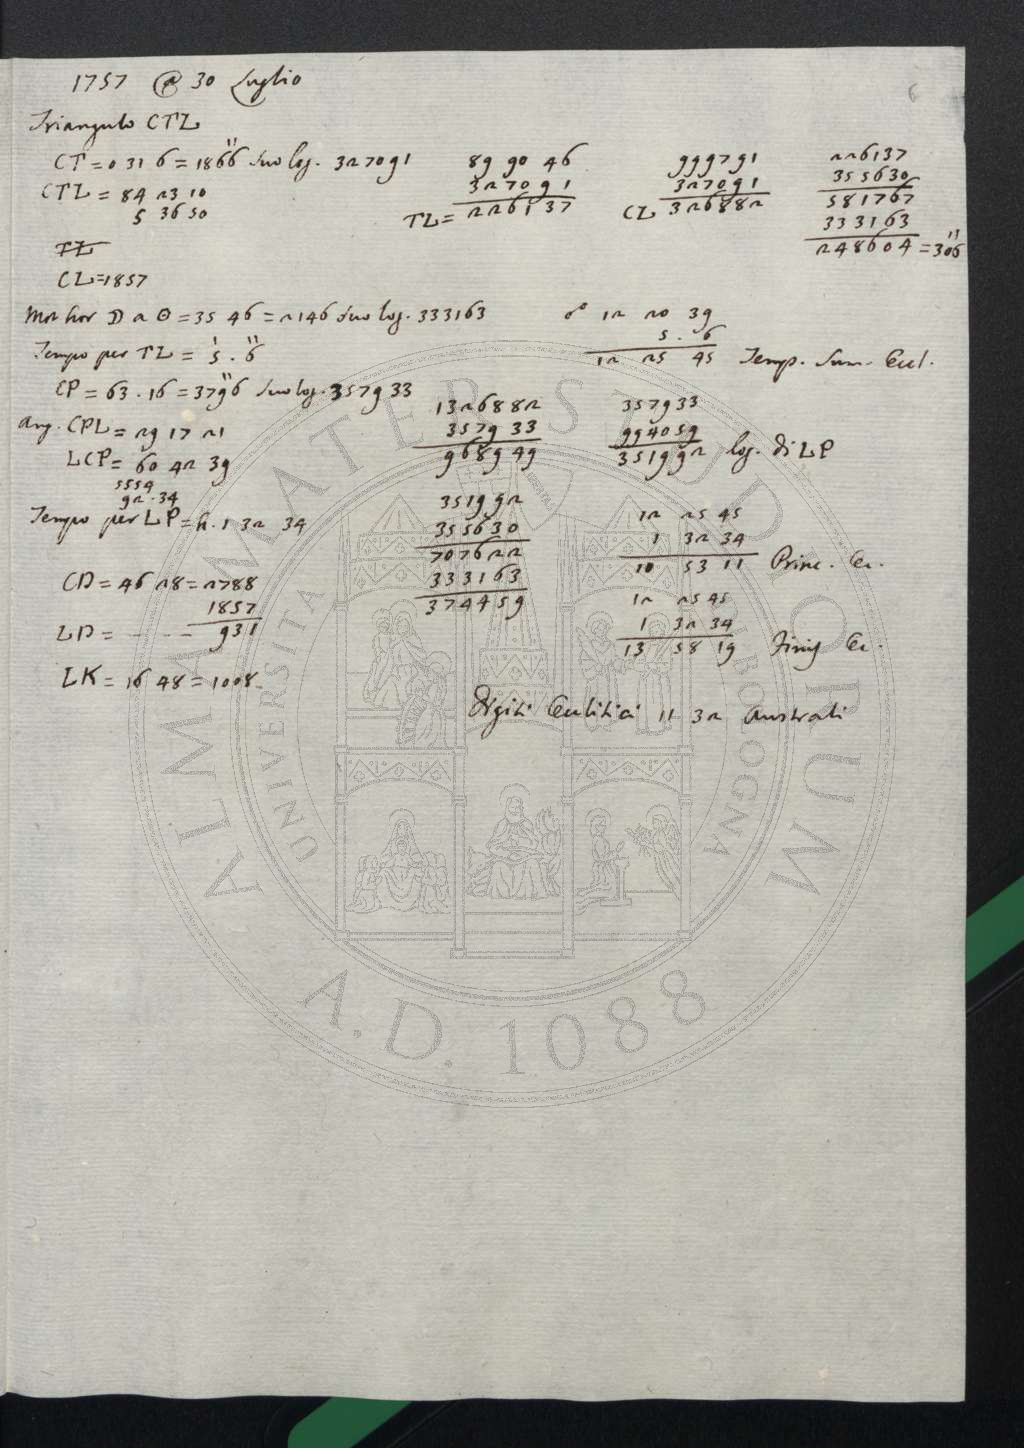 1757 @ 30 Luglio
6
Triangulo CTL
CT = 0 31 6 = 1866'' suo log. 327091
CTL = 84 23 10
5 36 50
TL
CL = 1857
89 90 46
327091
TL = 226137
999791
327091
CL 326882
226137
355630
581767
333163
248604 = 306''
Mot hor D a ☉ = 35 46 = 2146 suo log. 333163
Tempo per TL = 5' . 6''
☌ 12 20 39
5 . 6
12 25 45 Temp. Sum. Ecl.
CP = 63 . 16 = 3796'' suo log. 357933
Ang. CPL = 29 17 21
LCP = 60 42 39
5554
92 . 34
Tempo per LP = h. 1 32 34
1326882
357933
968949
357933
994059
351992 log. di LP
351992
355630
707622
333163
374459
12 25 45
1 32 34
10 53 11 Princ. Ec.
12 25 45
1 32 34
13 58 19 Finis Ec.
CD = 46 28 = 2788
1857
LD = - - - 931
LK = 16 48 = 1008
Digiti Eclitici 11 32 Australi
ALMA MATER STUDIORUM
UNIVERSITÀ DI BOLOGNA
A.D. 1088